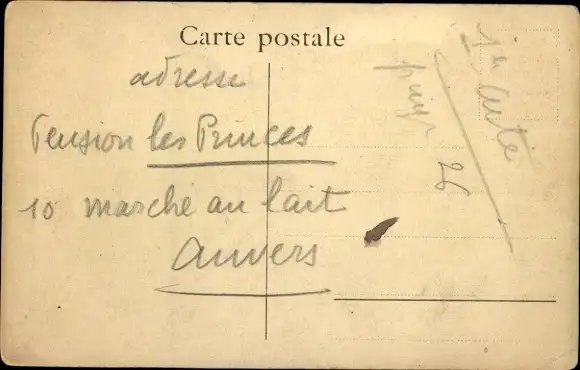 Carte postale
adresse
Pension les Princes
10 marché au lait
Anvers
26